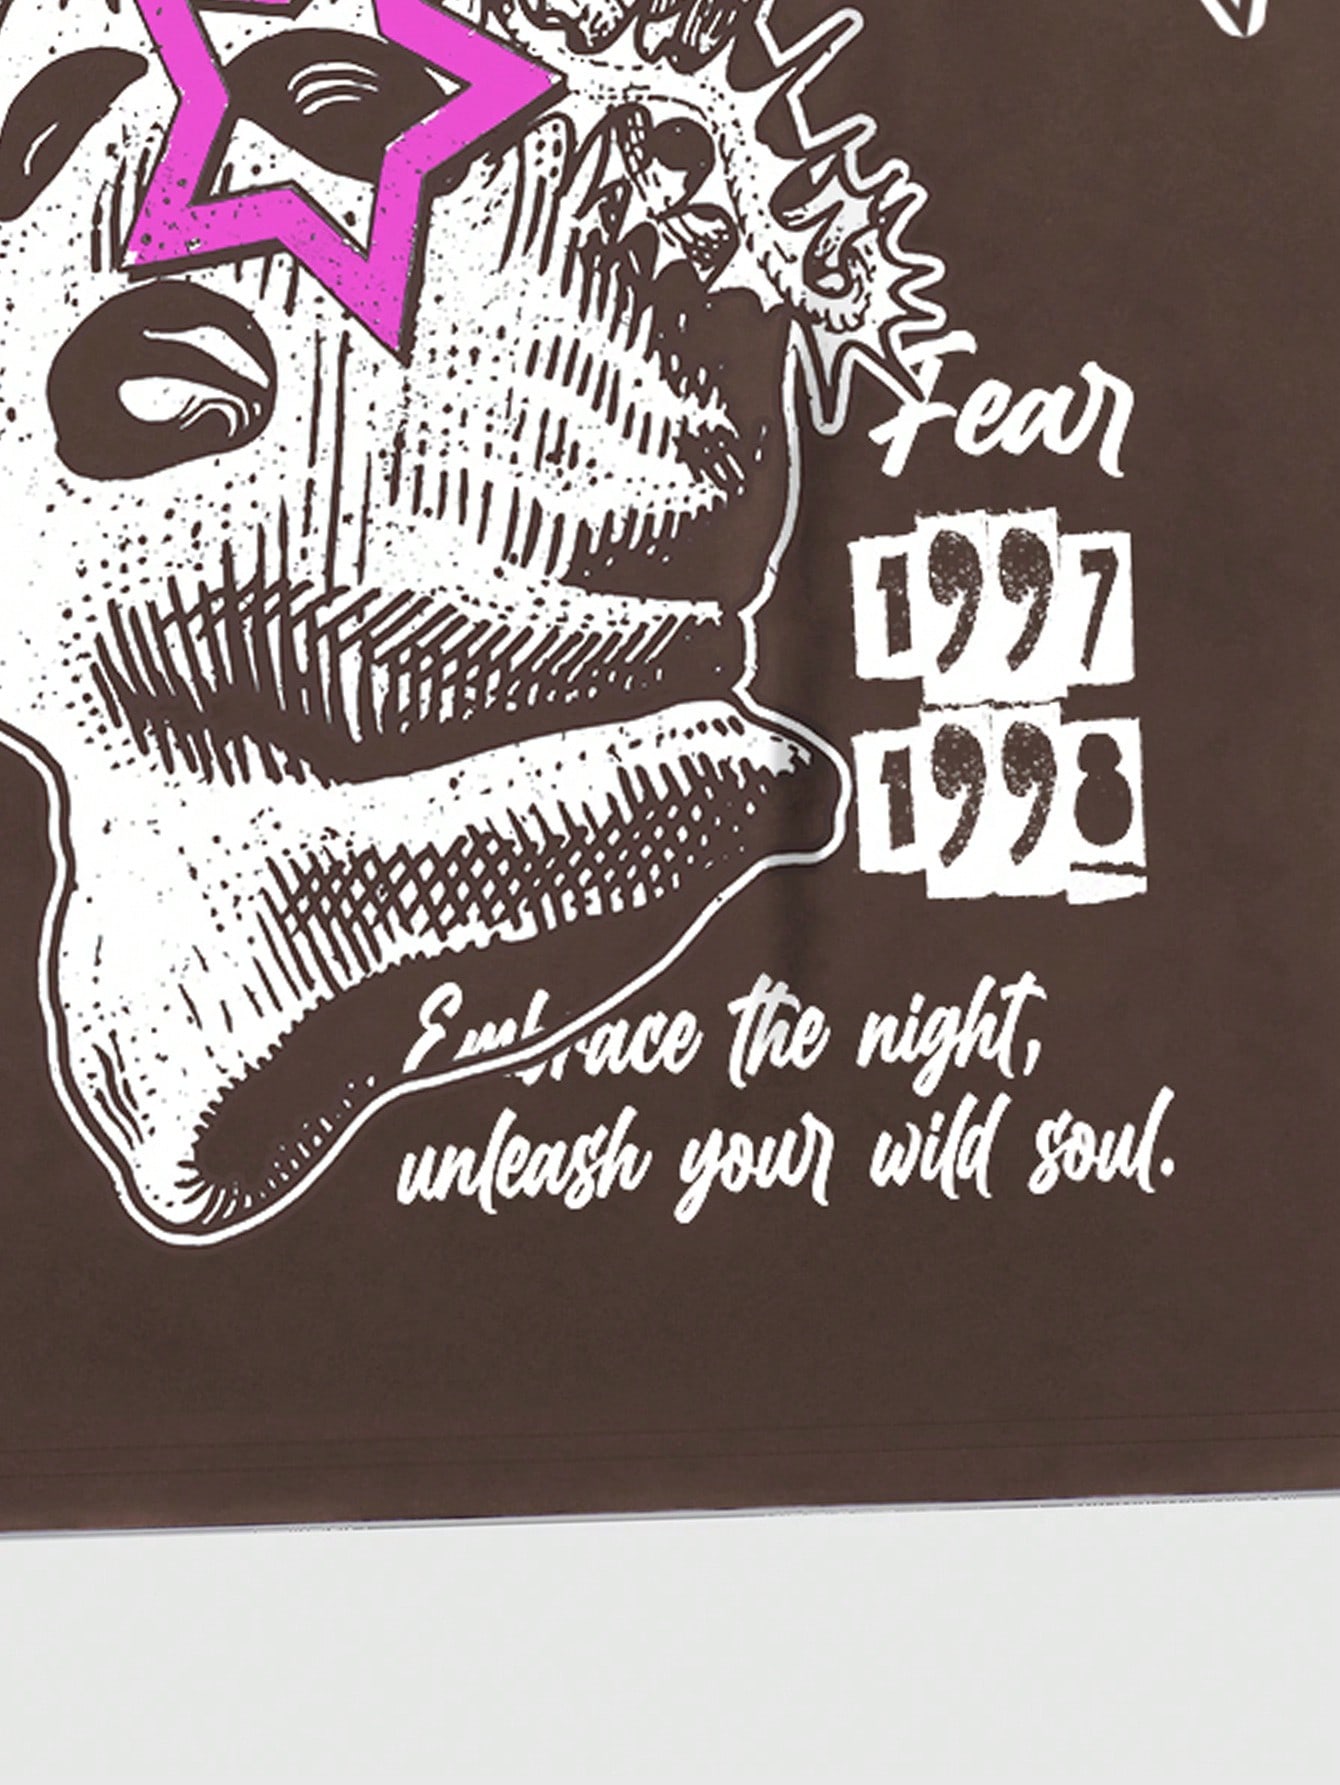 Fear
1997
1998
Embrace the night,
unleash your wild soul.